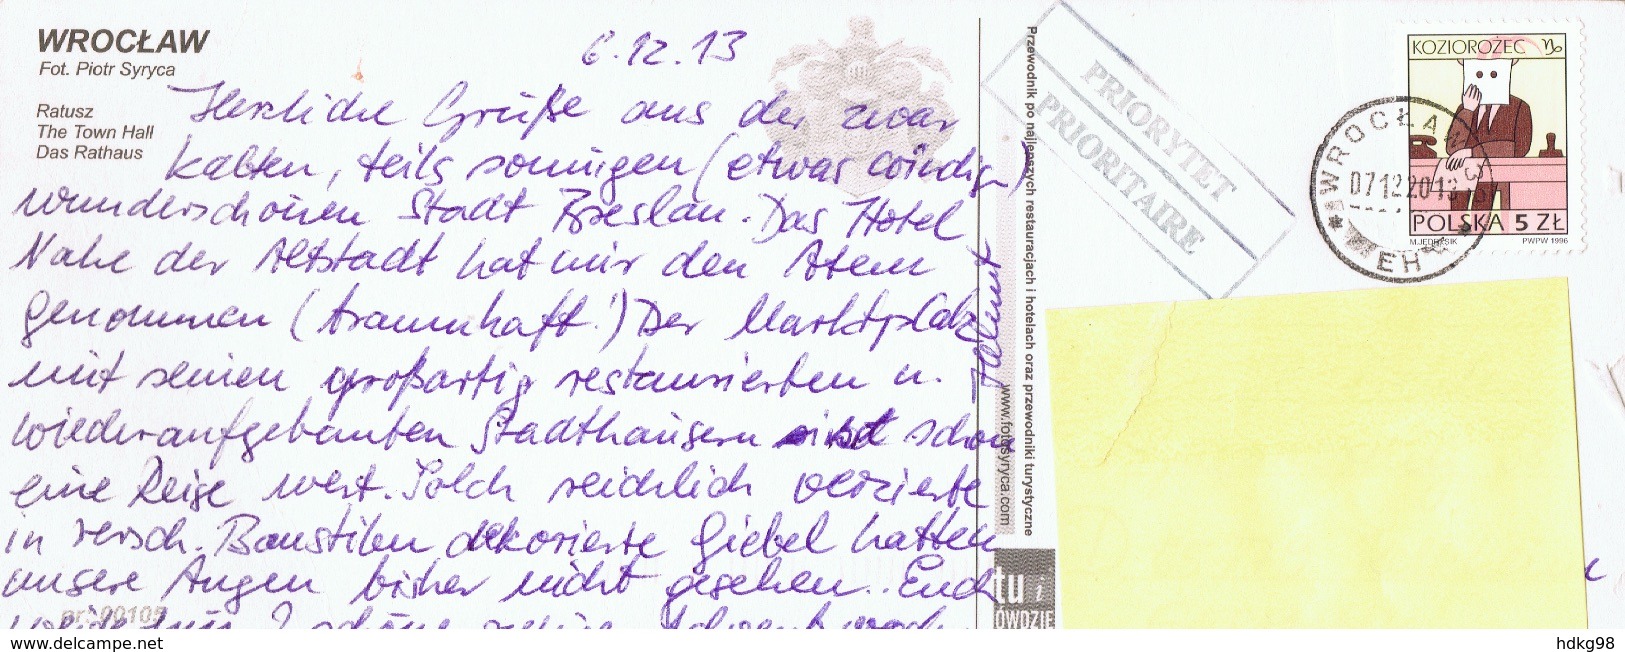 WROCŁAW
Fot. Piotr Syryca
Ratusz
The Town Hall
Das Rathaus
6.12.13
Herzliche Grüße aus der zwar
kalten, teils sonnigen (etwas windig)
wunderschönen Stadt Breslau. Das Hotel
Nahe der Altstadt hat mir den Atem
genommen (traumhaft!) Der Marktplatz
mit seinen großartig restaurierten u.
wiederaufgebauten Stadthäusern ist schon
eine Reise wert. Solch reichlich verzierte
in versch. Baustilen dekorierte Giebel hatten
unsere Augen bisher nicht gesehen. Euch
schöne Advent
Helmut
nr: 00105
Przewodnik po najlepszych restauracjach i hotelach oraz przewodniki turystyczne
www.fotosyryca.com
tu i
ÓWDZIE
PRIORYTET
PRIORITAIRE
KOZIOROŻEC
POLSKA 5 ZŁ
M.JĘDRYSIK PWPW 1996
WROCŁAW
07122013
EH
www.delcampe.net
hdkg98